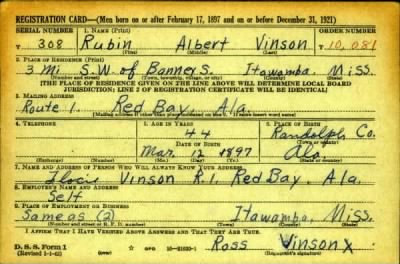 REGISTRATION CARD—(Men born on or after February 17, 1897 and on or before December 31, 1921)
SERIAL NUMBER 1. NAME (Print) ORDER NUMBER
T 308 Rubin Albert Vinson T 10,081
(First) (Middle) (Last)
2. PLACE OF RESIDENCE (Print)
3 Mi S.W. of Banners. Itawamba, Miss.
(Number and street) (Town, township, village, or city) (County) (State)
[THE PLACE OF RESIDENCE GIVEN ON THE LINE ABOVE WILL DETERMINE LOCAL BOARD
JURISDICTION; LINE 2 OF REGISTRATION CERTIFICATE WILL BE IDENTICAL]
3. MAILING ADDRESS
Route 1. Red Bay, Ala.
[Mailing address if other than place indicated on line 2. If same insert word same]
4. TELEPHONE 5. AGE IN YEARS 6. PLACE OF BIRTH
44 Randolph Co.
DATE OF BIRTH (Town or county)
Mar. 12 1897 Ala.
(Exchange) (Number) (Mo.) (Day) (Yr.) (State or country)
7. NAME AND ADDRESS OF PERSON WHO WILL ALWAYS KNOW YOUR ADDRESS
Vinson R.1, Red Bay, Ala.
8. EMPLOYER'S NAME AND ADDRESS
Self
9. PLACE OF EMPLOYMENT OR BUSINESS
Same as (2) Itawamba, Miss.
(Number and street or R. F. D. number) (Town) (County) (State)
I AFFIRM THAT I HAVE VERIFIED ABOVE ANSWERS AND THAT THEY ARE TRUE.
D. S. S. Form 1
(Revised 1-1-42) GPO 16—21630-1 Ross Vinson x
(Registrant's signature)